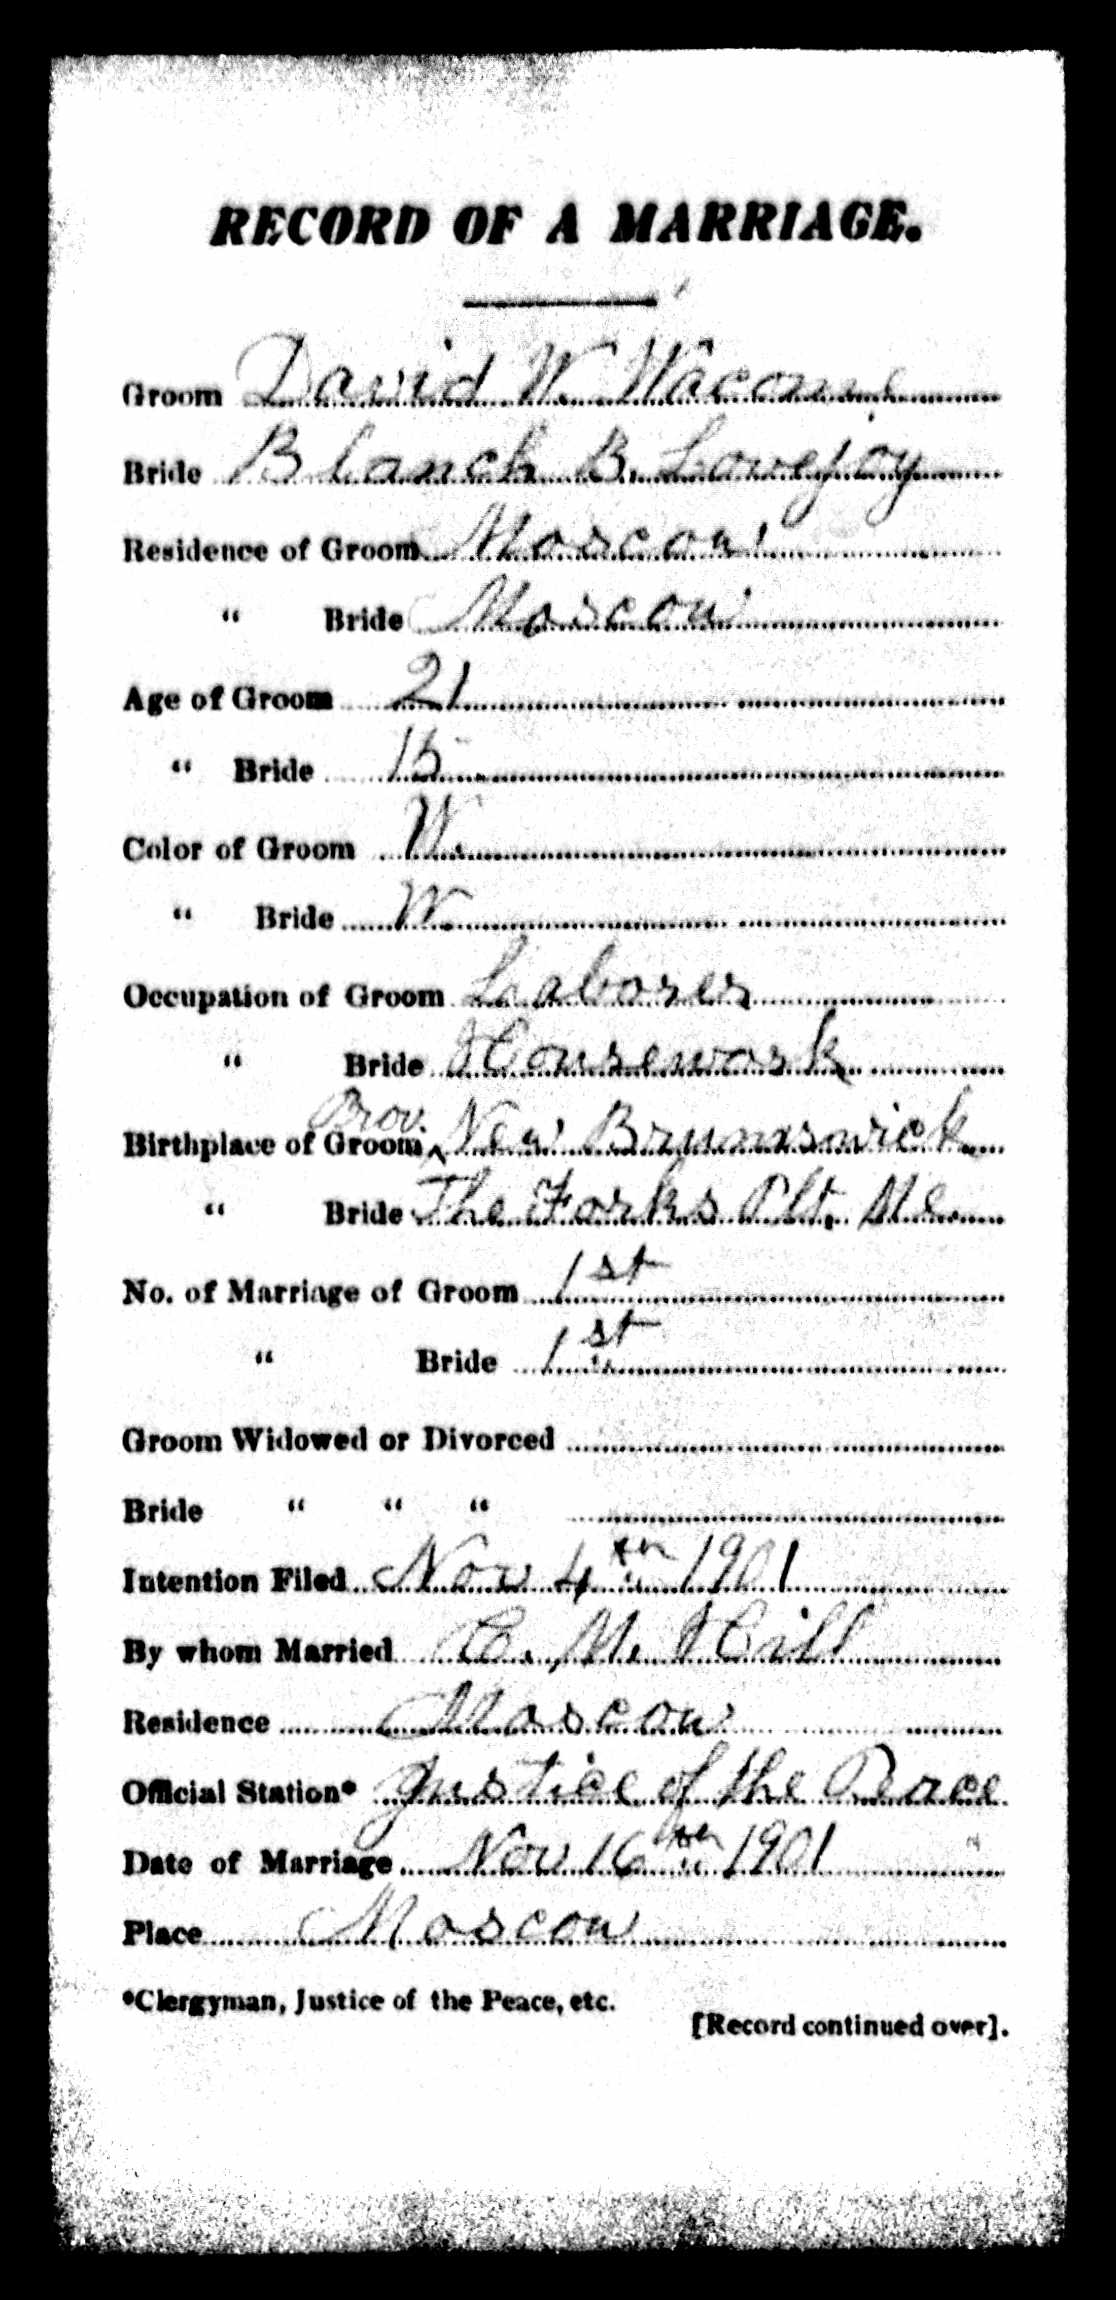 RECORD OF A MARRIAGE.
Groom David W. Wacome
Bride Blanch B. Lovejoy
Residence of Groom Moscow
" Bride Moscow
Age of Groom 21
" Bride 15
Color of Groom W.
" Bride W.
Occupation of Groom Laborer
" Bride Housework
Birthplace of Groom Prov. New Brunswick
" Bride The Forks Plt. Me.
No. of Marriage of Groom 1st
" Bride 1st
Groom Widowed or Divorced
Bride " " "
Intention Filed Nov 4th 1901
By whom Married C. M. Hill
Residence Moscow
Official Station* Justice of the Peace
Date of Marriage Nov 16th 1901
Place Moscow
*Clergyman, Justice of the Peace, etc.
[Record continued over].